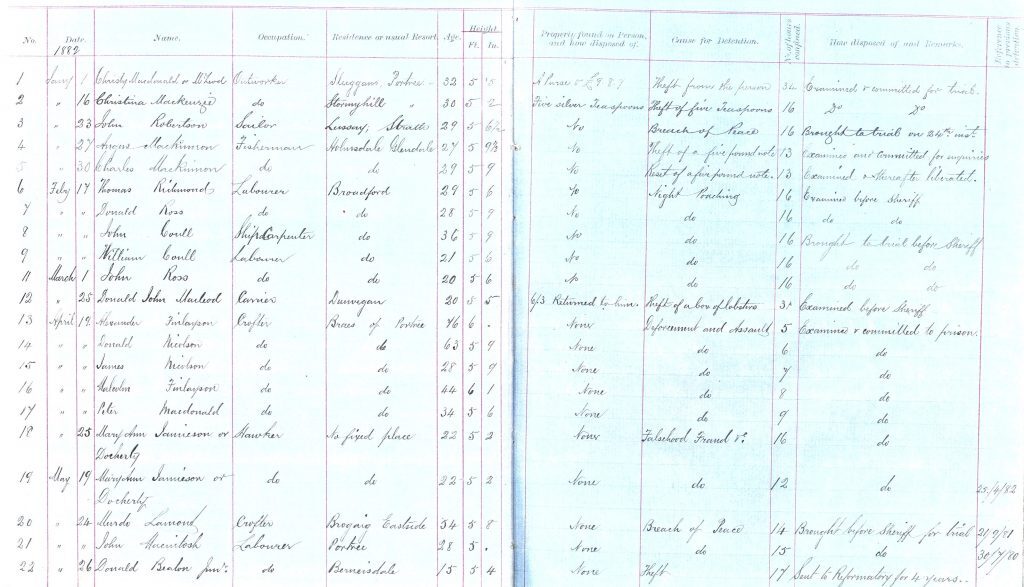 No. Date. Name. Occupation. Residence or usual Resort. Age. Height. Ft. In. Property found on Person, and how disposed of. Cause for Detention. No. of hours confined. How disposed of and Remarks. Reference to previous detention.
1882
1 Jany 7 Christy Macdonald or McLeod Outworker Sluggans, Portree 32 5 A Purse & £8 8 9 Theft from the person 34 Examined & committed for trial.
2 " 16 Christina Mackenzie do Stormyhill " 30 5 2 Five silver Teaspoons Theft of five Teaspoons 16 Do Do
3 " 23 John Robertson Sailor Lussay, Strath 29 5 6½ No Breach of Peace 16 Brought to trial on 24th inst.
4 " 27 Angus Mackinnon Fisherman Holmsdale Glendale 27 5 9½ No Theft of a five pound note 13 Examined and committed for inquiries
5 " 30 Charles Mackinnon do do 29 5 9 No Reset of a five pound note. 13 Examined & thereafter liberated.
6 Feby 17 Thomas Richmond Labourer Broadford 29 5 6 No Night Poaching 16 Examined before Sheriff
7 " " Donald Ross do do 28 5 9 No do 16 do do
8 " " John Coull Ship Carpenter do 36 5 9 No do 16 Brought to trial before Sheriff
9 " " William Coull Labourer do 21 5 6 No do 16 do do
11 March 1 John Ross do do 20 5 6 No do 16 do do
12 " 25 Donald John Macleod Carrier Dunvegan 20 5 5 6/3 Returned to him. Theft of a box of lobsters 3 Examined before Sheriff
13 April 19 Alexander Finlayson Crofter Braes of Portree 46 6 . None Deforcement and Assault 5 Examined & committed to prison.
14 " " Donald Nicolson do do 63 5 9 None do 6 do
15 " " James Nicolson do do 28 5 9 None do 7 do
16 " " Malcolm Finlayson do do 44 6 1 None do 8 do
17 " " Peter Macdonald do do 34 5 6 None do 9 do
18 " 25 Mary Ann Jamieson or Hawker No fixed place 22 5 2 None Falsehood Fraud &c. 16 do
Docherty
19 May 19 Mary Ann Jamieson or do do 22 5 2 None do 12 do 25/4/82
Docherty
20 " 24 Murdo Lamont Crofter Brogaig Eastside 34 5 8 None Breach of Peace 14 Brought before Sheriff for trial 21/9/81
21 " " John Macintosh Labourer Portree 28 5 . None do 15 do 30/7/80
22 " 26 Donald Beaton junr. do Bernisdale 15 5 4 None Theft 17 Sent to Reformatory for 4 years.